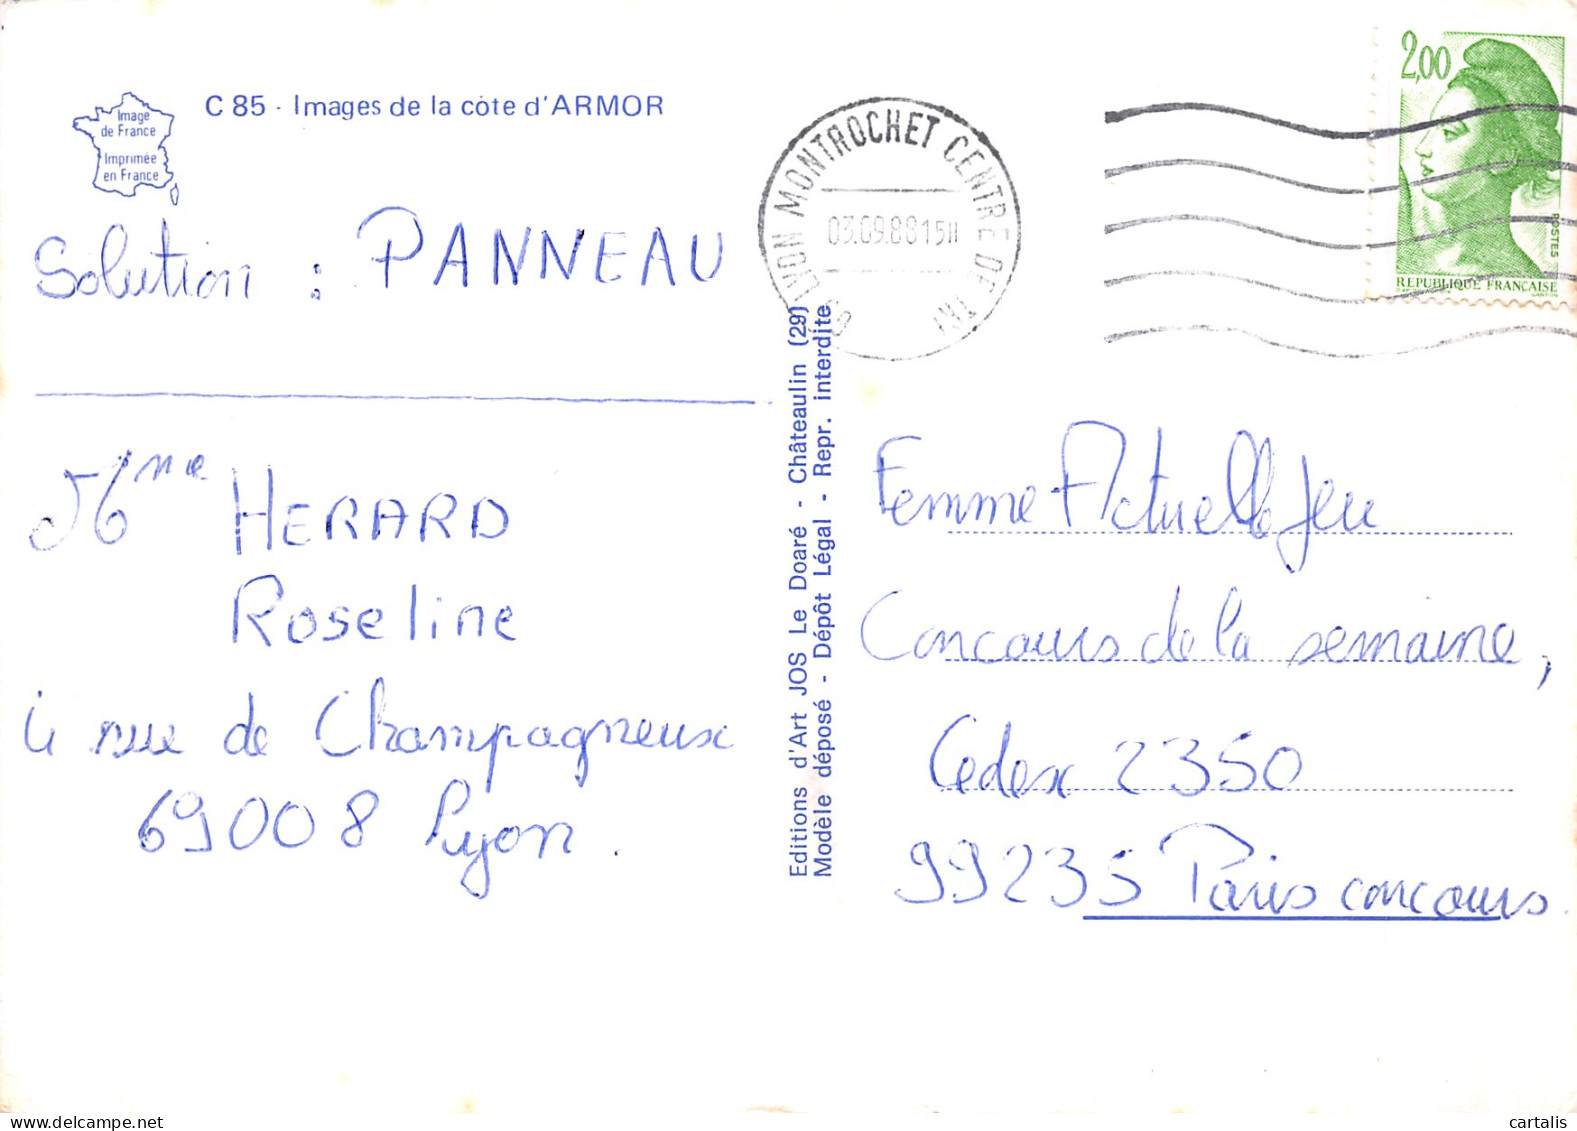 C 85 - Images de la côte d'ARMOR
Image
de France
Imprimée
en France
Solution : PANNEAU
Mme HERARD
Roseline
4 rue de Champagneux
69008 Lyon.
Editions d'Art JOS Le Doaré - Châteaulin (29)
Modèle déposé - Dépôt Légal - Repr. interdite
LYON MONTROCHET CENTRE DE TRI
03.09.88 15H
2,00
POSTES
REPUBLIQUE FRANCAISE
Femme Actuelle Jeu
Concours de la semaine,
Cedex 2350
99235 Paris concours
cartalis